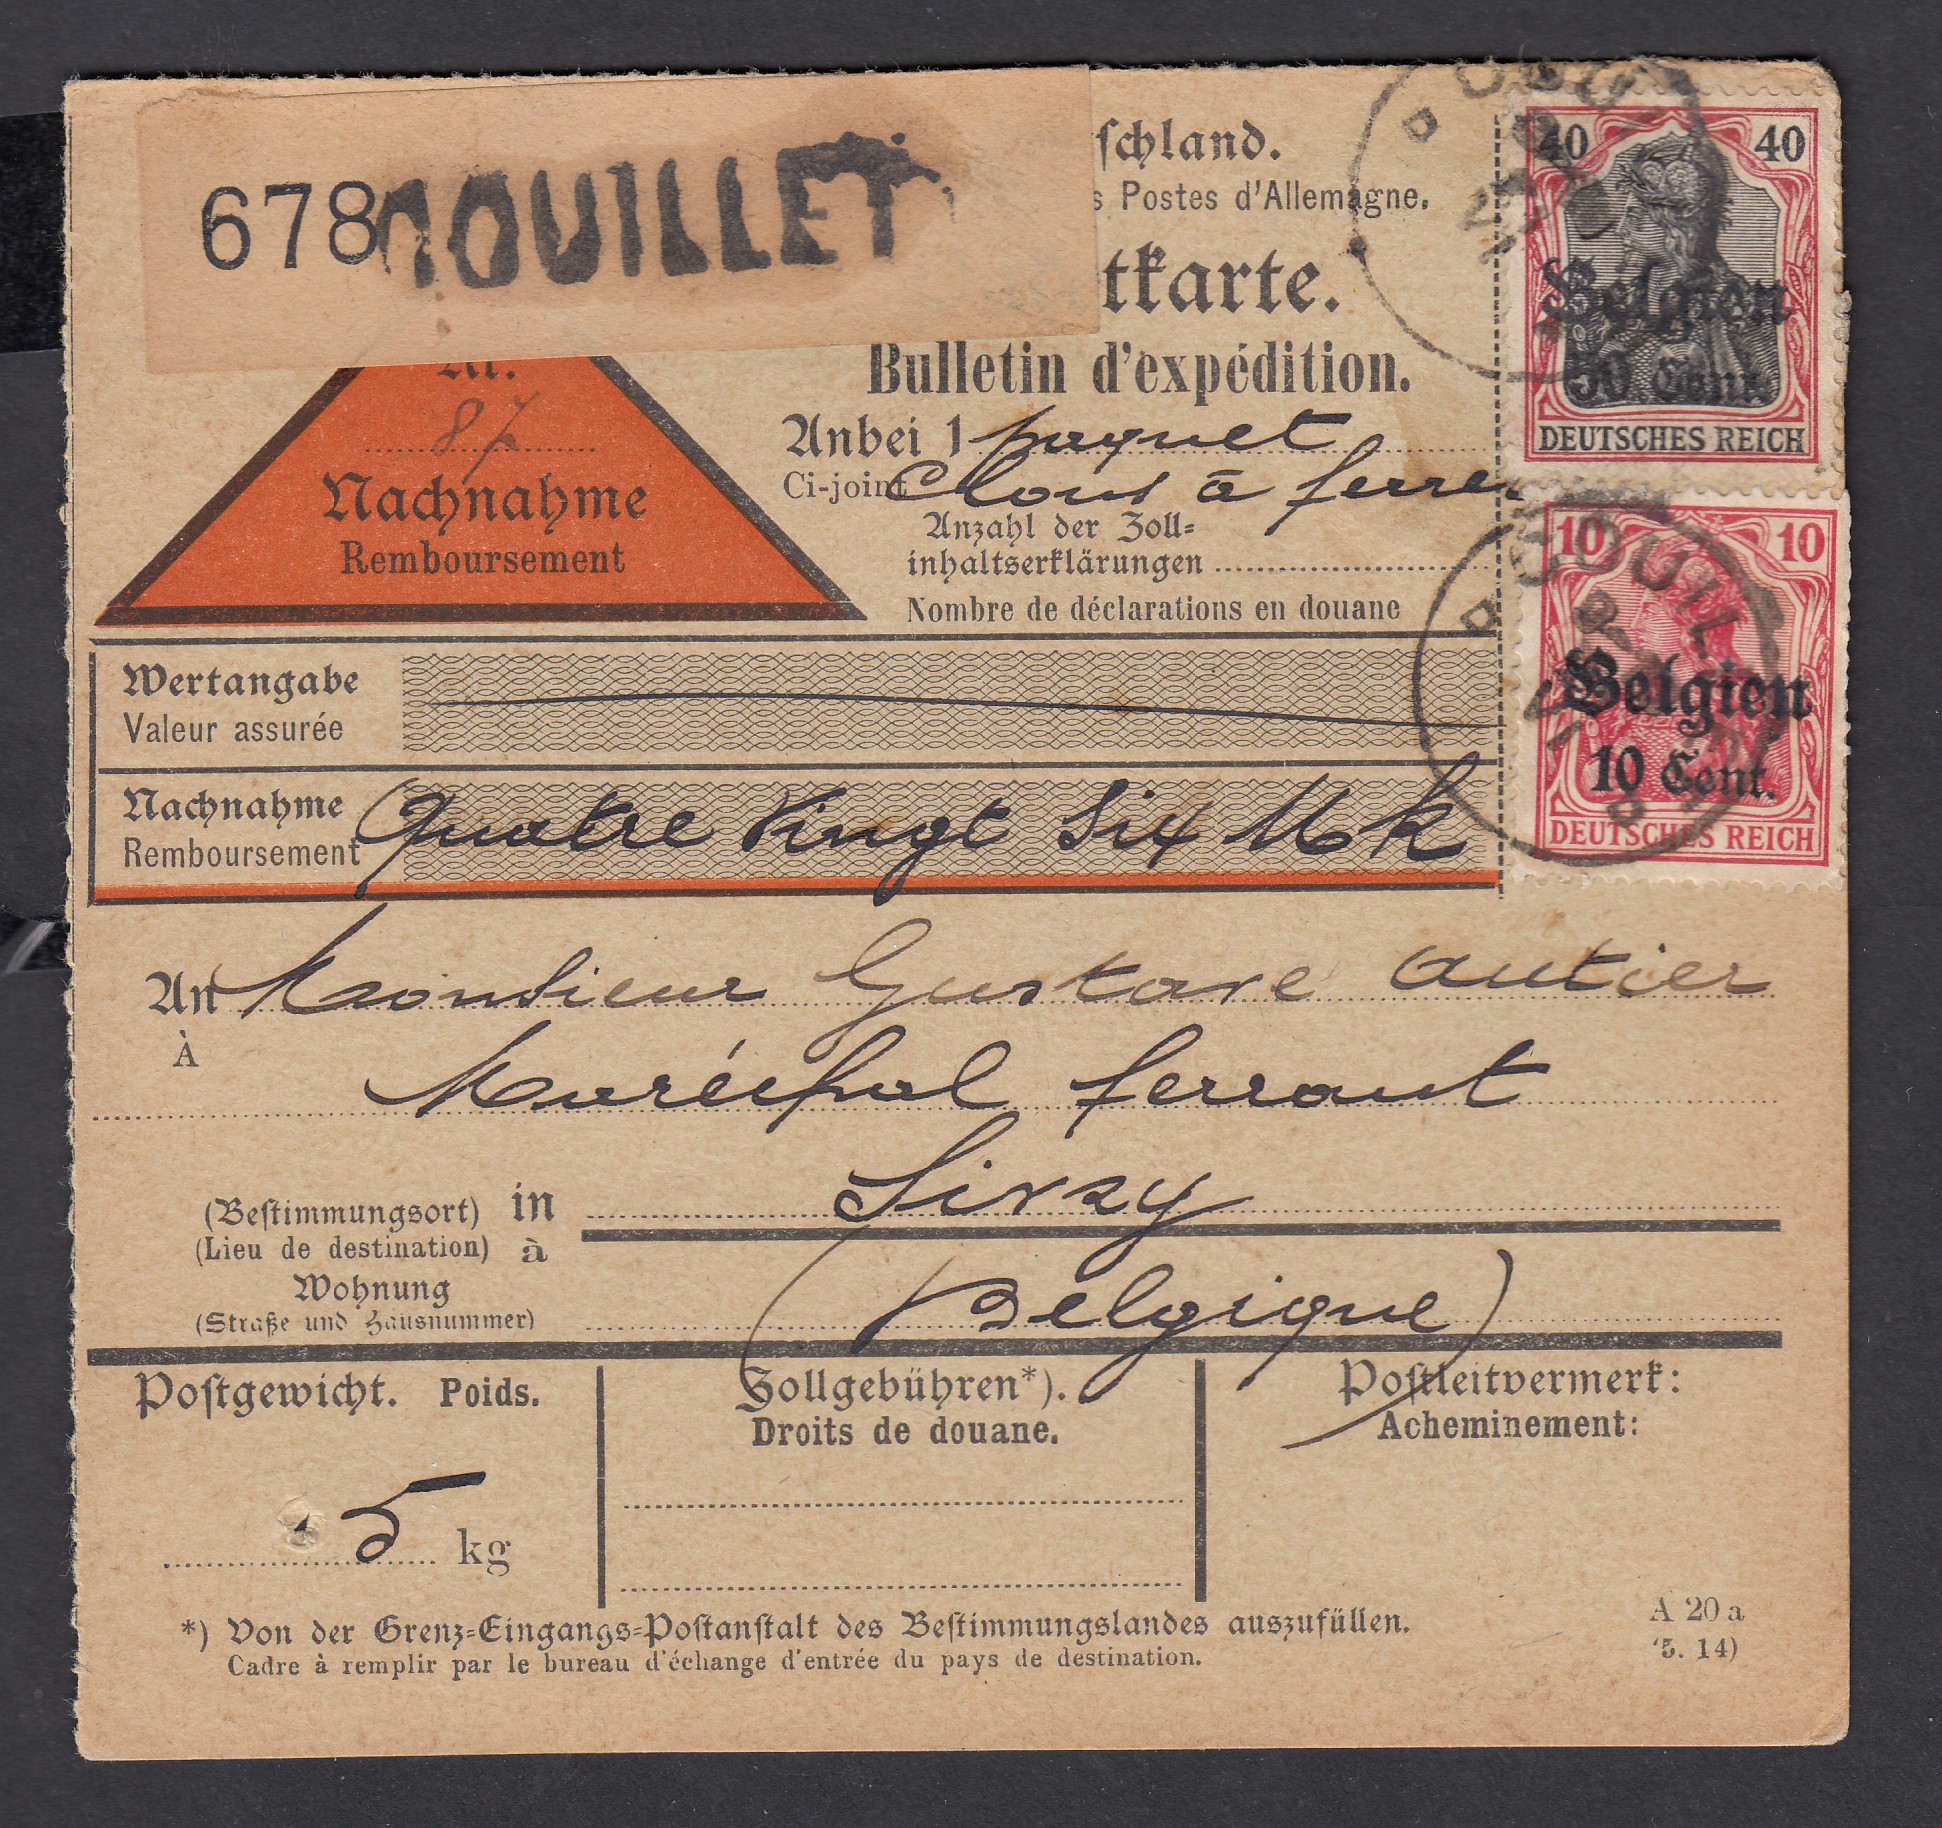 678 COUILLET
schland.
s Postes d'Allemagne.
tkarte.
Bulletin d'expédition.
Nr.
87
Nachnahme
Remboursement
Anbei 1 paquet
Ci-joint Clous à ferrer
Anzahl der Zoll=
inhaltserklärungen
Nombre de déclarations en douane
40 40
Belgien
50 Cent.
DEUTSCHES REICH
10 10
COUIL
Belgien
10 Cent.
DEUTSCHES REICH
Wertangabe
Valeur assurée
Nachnahme
Remboursement
Quatre Vingt Six Mk
An Monsieur Gustave Autier
À
Maréchal ferrant
(Bestimmungsort) in Sivry
(Lieu de destination) à
Wohnung
(Straße und Hausnummer)
(Belgique)
Postgewicht. Poids.
5 kg
Zollgebühren*).
Droits de douane.
Postleitvermerk:
Acheminement:
*) Von der Grenz=Eingangs=Postanstalt des Bestimmungslandes auszufüllen.
Cadre à remplir par le bureau d'échange d'entrée du pays de destination.
A 20 a
(5. 14)